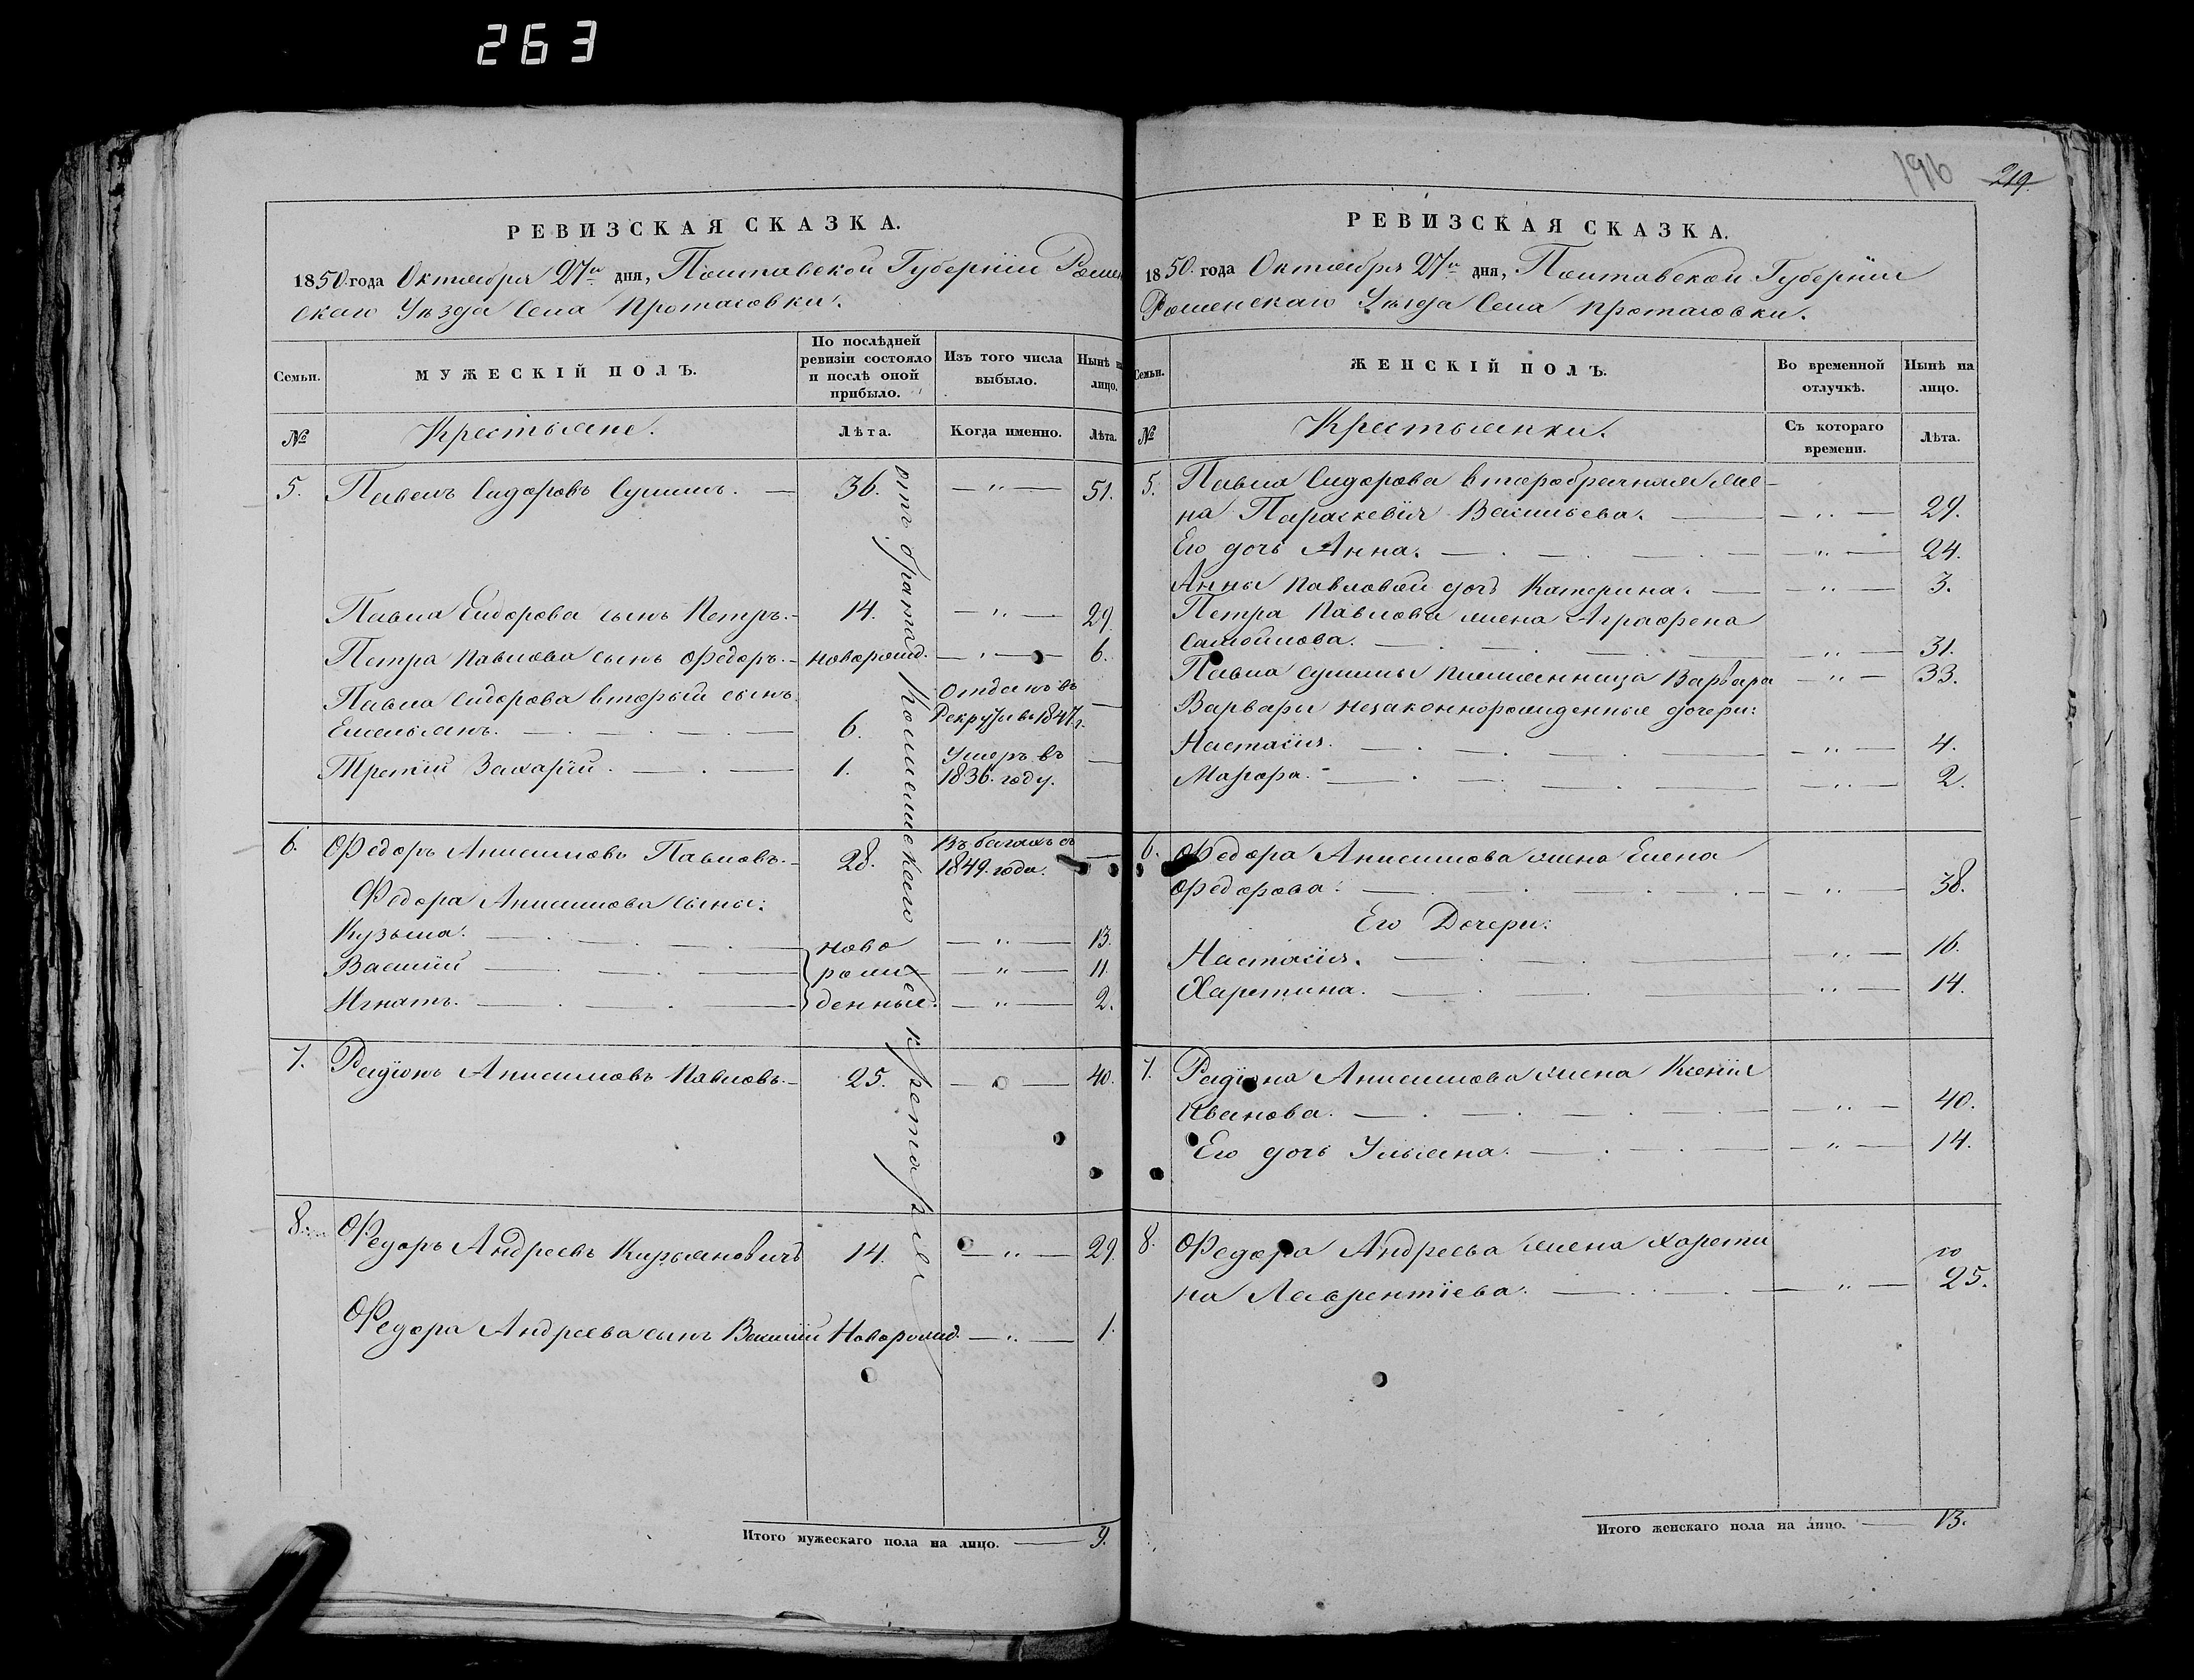 263
РЕВИЗСКАЯ СКАЗКА.
1850 года Октября 27го дня, Полтавской Губернiи Ромен
скаго Уѣзда Села Протасовки.
Семьи.
МУЖЕСКІЙ ПОЛЪ.
По послѣдней
ревизіи состояло
и послѣ оной
прибыло.
Изъ того числа
выбыло.
Нынѣ на
лицо.
№
Крестьяне.
Лѣта.
Когда именно.
Лѣта.
5. Павелъ Сидоровъ Сулима. — 36. — „ — 51.
Павла Сидорова сынъ Петръ. — 14. — „ — 29.
Петра Павлова сынъ Федоръ. — новорожд. — „ — 6.
Павла Сидорова вторый сынъ
Емельянъ. — 6. Отданъ въ
Рекруты въ 1847 г. —
Третій Захарій. — 1. Умеръ въ
1836. году. —
6. Федоръ Анисимовъ Павловъ. — 28. Въ бегахъ съ
1849. года. —
Федора Анисимова сыны:
Кузьма. — ново — „ — 13.
Василій — рож — „ — 11.
Игнатъ. — денные. — „ — 2.
7. Радіонъ Анисимовъ Павловъ. — 25. — „ — 40.
8. Федоръ Андреевъ Кирьяновичъ 14. — „ — 29.
Федора Андреева сынъ Василій Новорожд. — „ — 1.
Итого мужескаго пола на лицо. — 9.
196 219.
РЕВИЗСКАЯ СКАЗКА.
1850. года Октября 27го дня, Полтавской Губерніи
Роменскаго Уѣзда Села Протасовки.
Семьи.
ЖЕНСКІЙ ПОЛЪ.
Во временной
отлучкѣ.
Нынѣ на
лицо.
№
Крестьянки.
Съ котораго
времени.
Лѣта.
5. Павла Сидорова второбрачная же-
на Параскевія Васильева. — „ — 29.
Его дочь Анна. — „ — 24.
Анны Павловой дочь Катерина. — „ — 3.
Петра Павлова жена Аграфена
Самойлова. — „ — 31.
Павла Сулимы племянница Варвара — „ — 33.
Варвары незаконнорожденные дочери:
Настасія. — „ — 4.
Мафра. — „ — 2.
6. Федора Анисимова жена Елена
Федорова. — „ — 38.
Его Дочери:
Настасія. — „ — 16.
Харетина. — „ — 14.
7. Радіона Анисимова жена Ксенія
Иванова. — „ — 40.
Его дочь Ульяна. — „ — 14.
8. Федора Андреева жена Харети
на Лаврентіева. — „ — 25.
Итого женскаго пола на лицо. — 13.